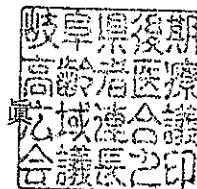 岐阜県後期
高齢者医療
眞
広域連合議
会議長之印